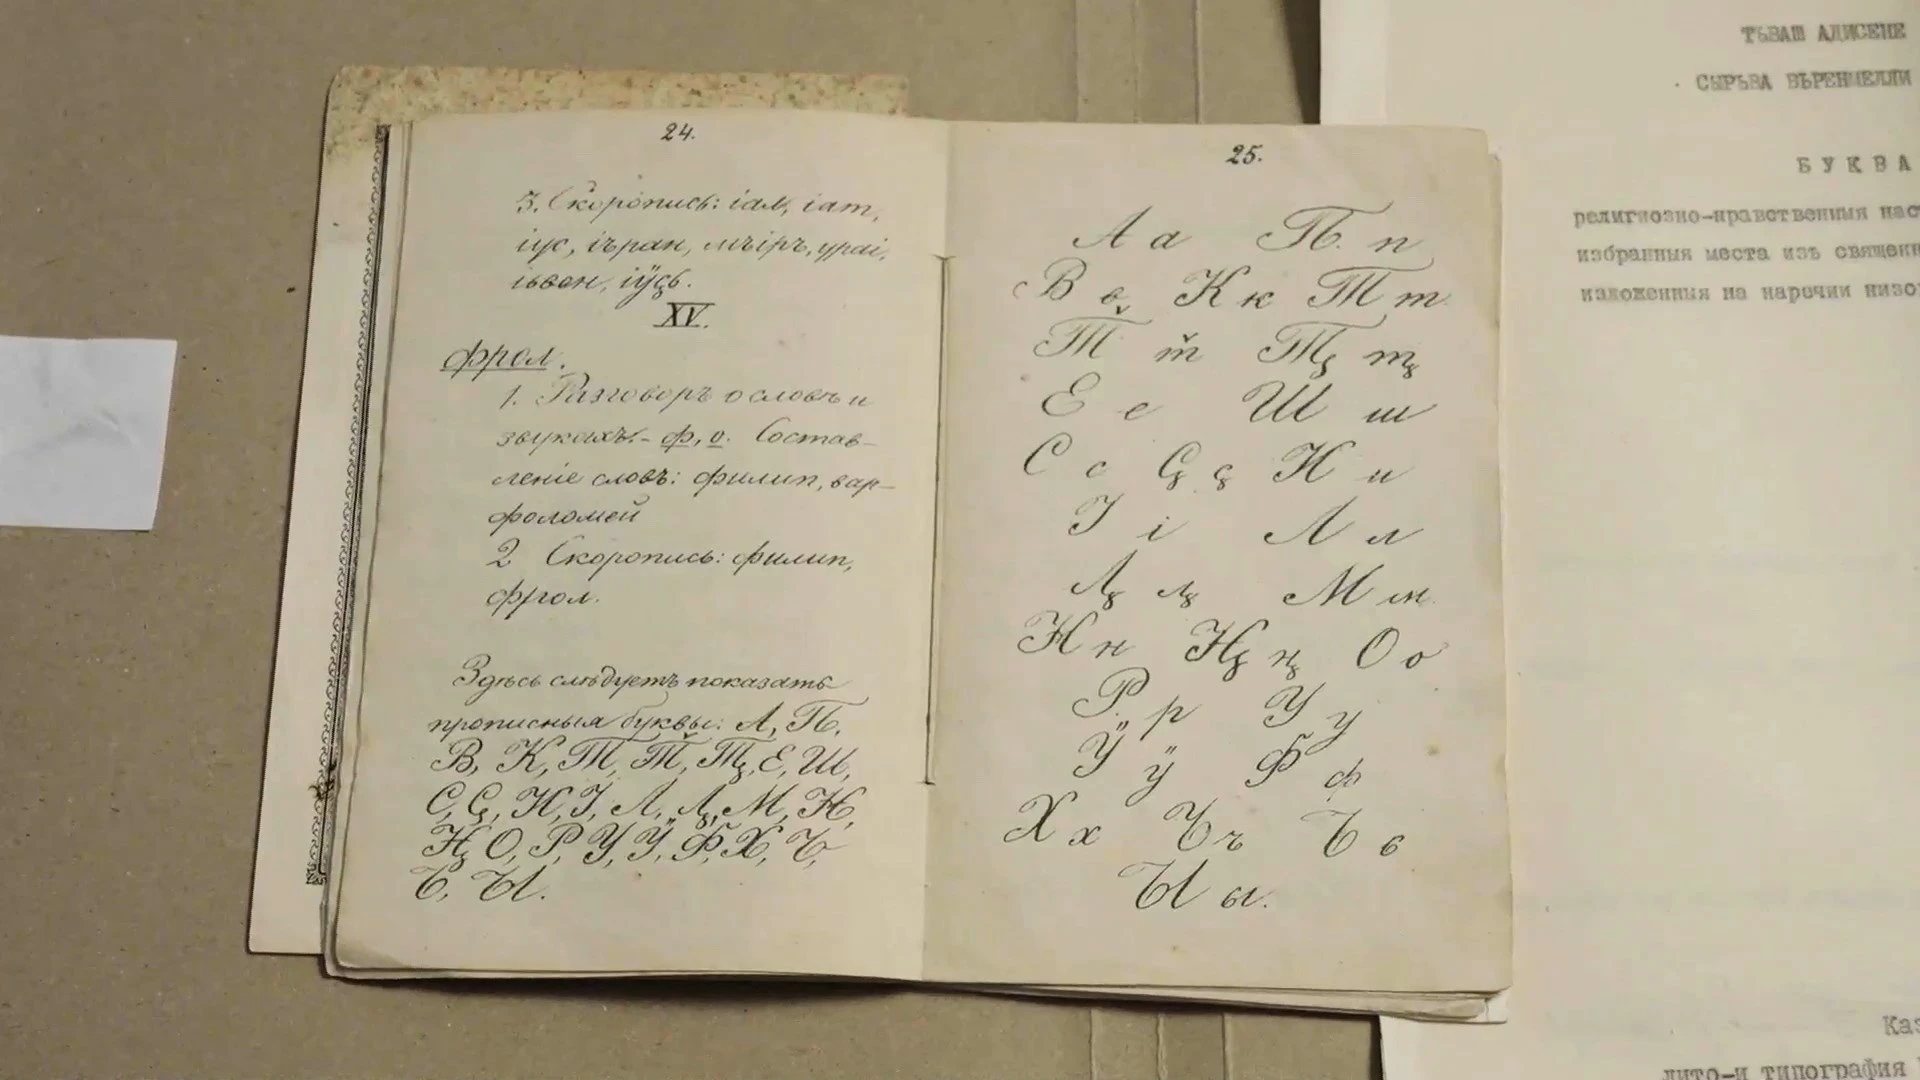 24.
3. Скоропись: іал, іат,
іус, іъран, мъіръ, ураі,
іывен, іӱçь.
XV.
фрол.
1. Разговоръ о словѣ и
звукахъ: - ф, о. Состав-
леніе словъ: филип, вар-
фоломей
2 Скоропись: филип,
фрол.
Здѣсь слѣдуетъ показать
прописныя буквы: А, П,
В, К, Т, Т̌, Т̡, Е, Ш,
С, Ç, И, І, Л, Л̡, М, Н,
Н̡, О, Р, У, Ӱ, Ф, Х, Ъ,
Ь, Ы.
25.
А а П п
В в К к Т т
Т̌ т̌ Т̡ т̡
Е е Ш ш
С с Ç ç И и
І і Л л
Л̡ л̡ М м
Н н Н̡ н̡ О о
Р р У у
Ӱ ӱ Ф ф
Х х Ъ ъ Ь ь
Ы ы.
ТЪВАШ АДИСЕНЕ
СЫРЪВА ВЪРЕНМЕЛЛИ
БУКВА
религиозно-нравственныя нас
избранныя места изъ священ
изложенныя на наречии низо
Каз
лито-и типография